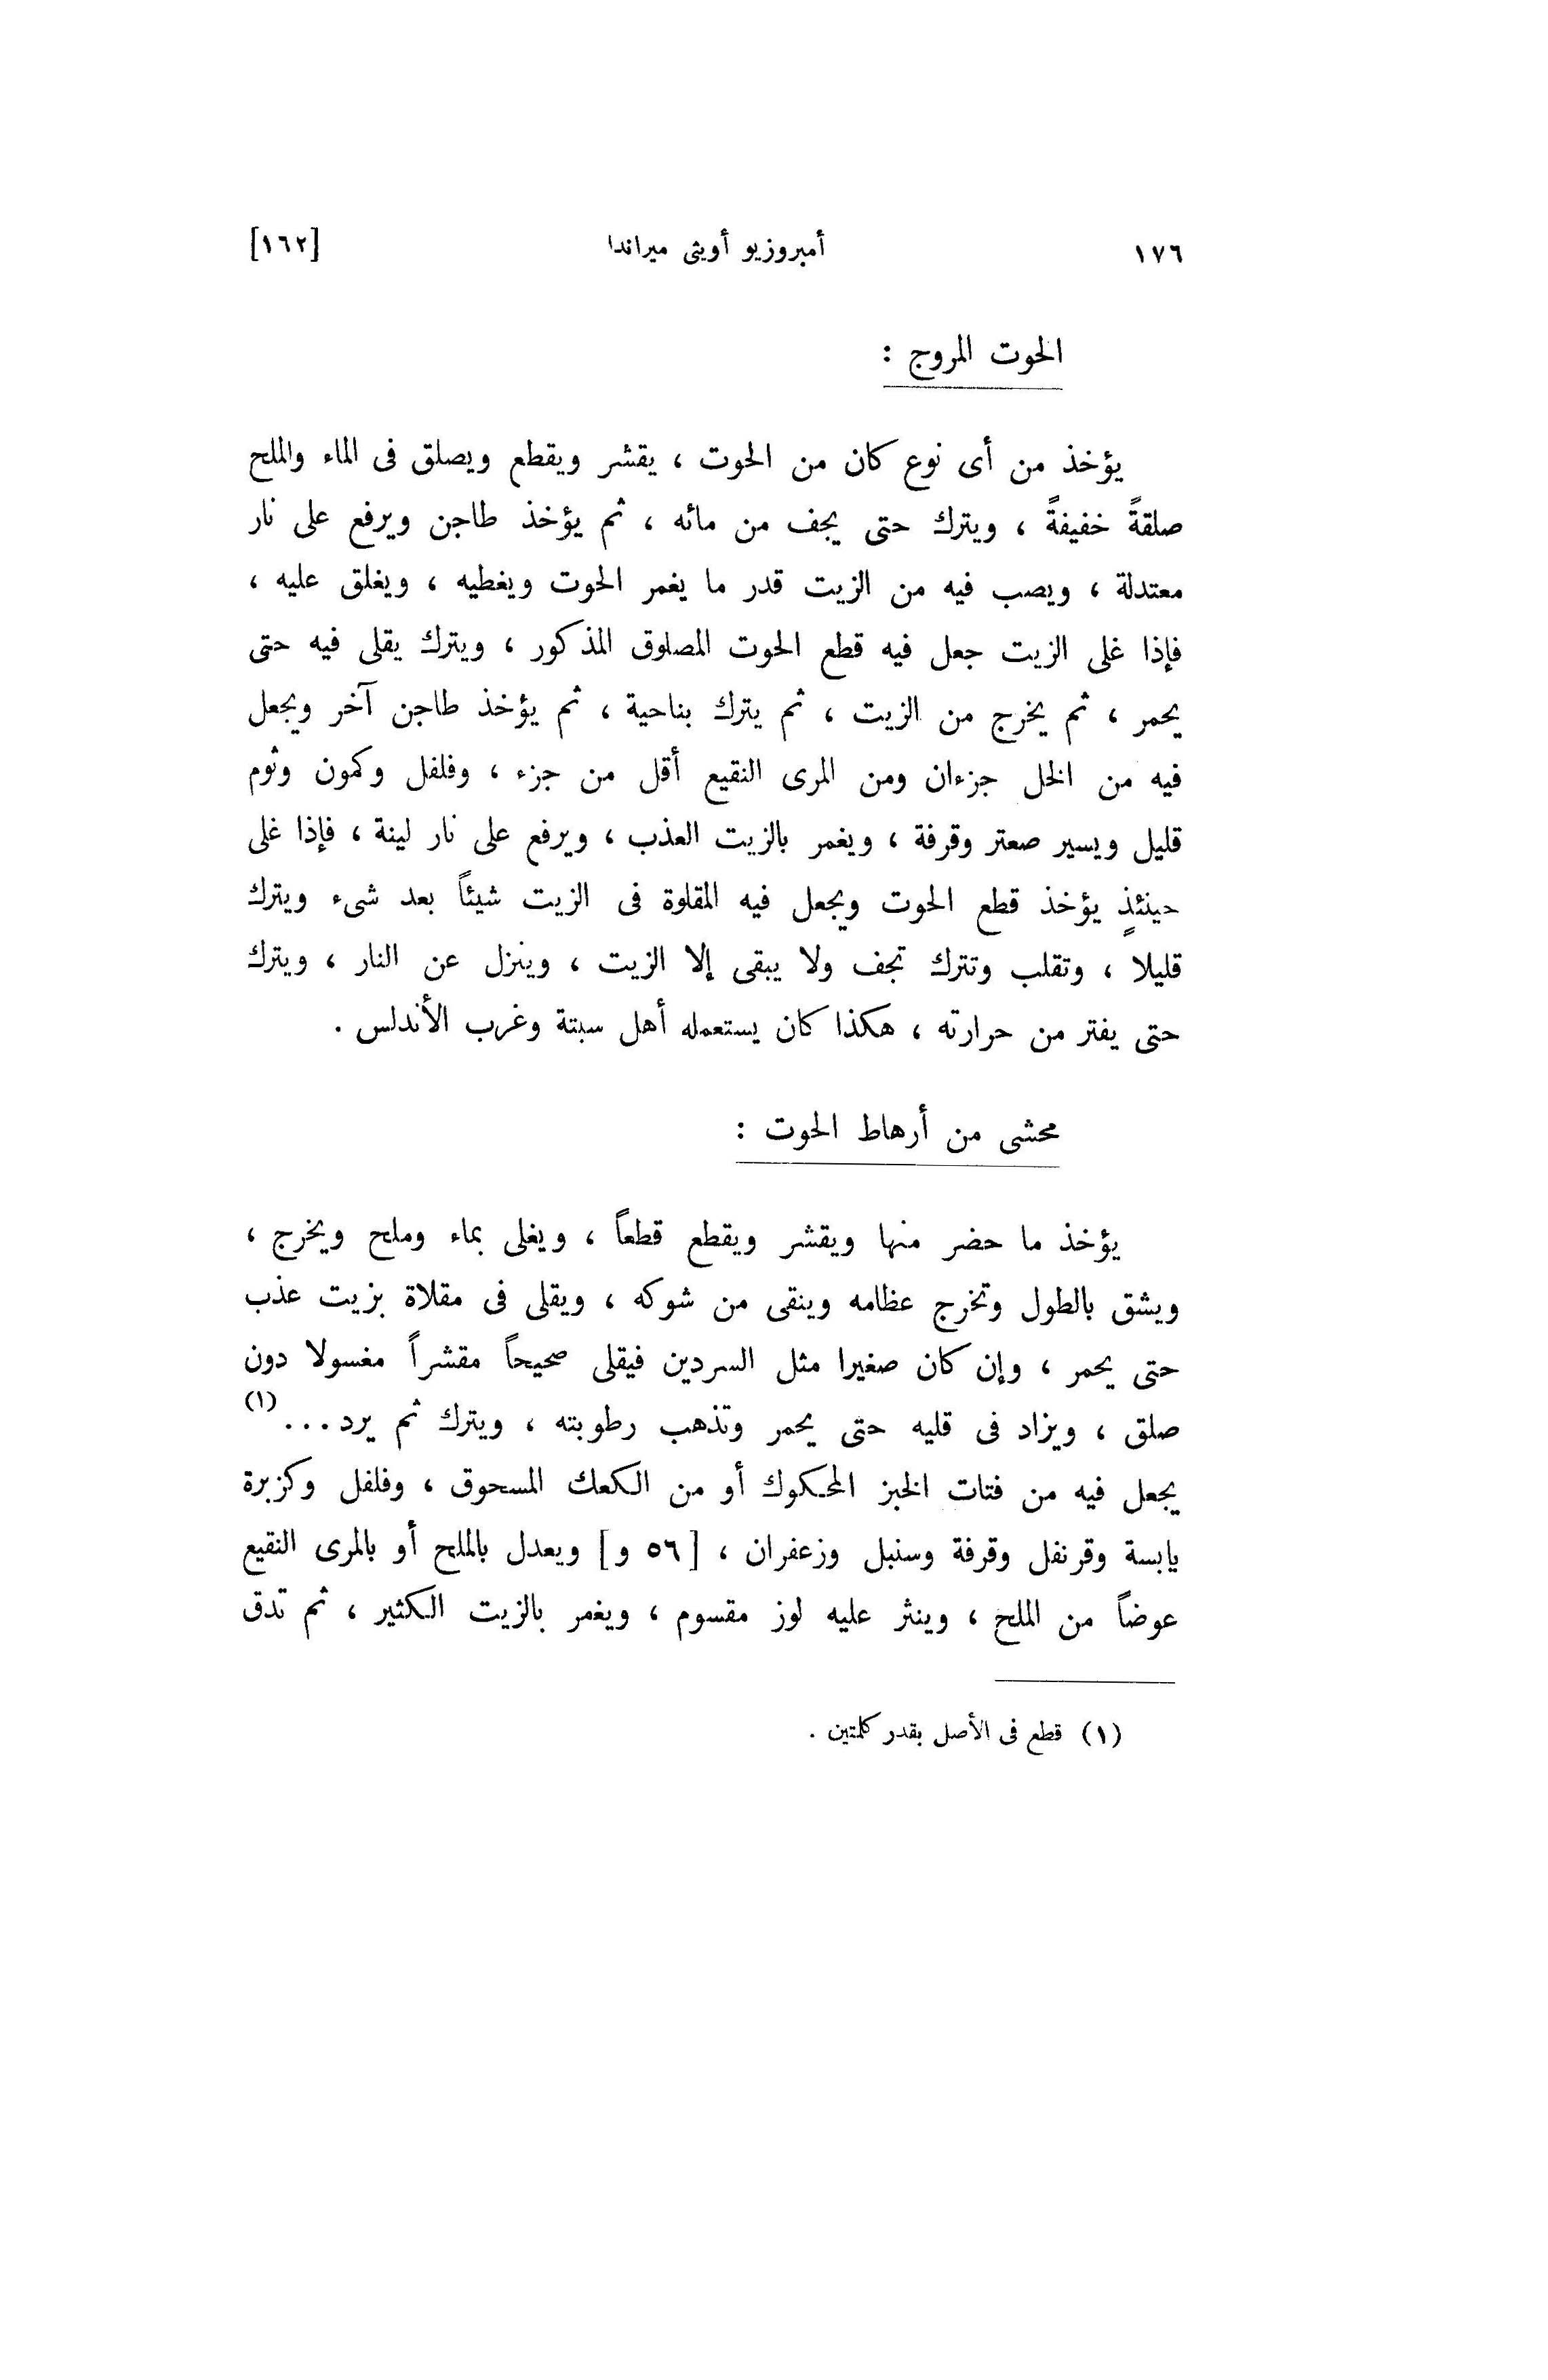 ١٧٦ أمبروزيو أويثى ميراندا [١٦٢]
الحوت المروج :
يؤخذ من أى نوع كان من الحوت ، يقشر ويقطع ويصلق فى الماء والملح
صلقةً خفيفةً ، ويترك حتى يجف من مائه ، ثم يؤخذ طاجن ويرفع على نار
معتدلة ، ويصب فيه من الزيت قدر ما يغمر الحوت ويغطيه ، ويغلق عليه ،
فإذا غلى الزيت جعل فيه قطع الحوت المصلوق المذكور ، ويترك يقلى فيه حتى
يحمر ، ثم يخرج من الزيت ، ثم يترك بناحية ، ثم يؤخذ طاجن آخر ويجعل
فيه من الخل جزءان ومن المرى النقيع أقل من جزء ، وفلفل وكمون وثوم
قليل ويسير صعتر وقرفة ، ويغمر بالزيت العذب ، ويرفع على نار لينة ، فإذا غلى
حينئذٍ يؤخذ قطع الحوت ويجعل فيه المقلوة فى الزيت شيئاً بعد شىء ويترك
قليلا ، وتقلب وتترك تجف ولا يبقى إلا الزيت ، وينزل عن النار ، ويترك
حتى يفتر من حرارته ، هكذا كان يستعمله أهل سبتة وغرب الأندلس .
محشى من أرهاط الحوت :
يؤخذ ما حضر منها ويقشر ويقطع قطعاً ، ويغلى بماء وملح ويخرج ،
ويشق بالطول وتخرج عظامه وينقى من شوكه ، ويقلى فى مقلاة بزيت عذب
حتى يحمر ، وإن كان صغيرا مثل السردين فيقلى صحيحاً مقشراً مغسولا دون
صلق ، ويزاد فى قليه حتى يحمر وتذهب رطوبته ، ويترك ثم يرد ... (١)
يجعل فيه من فتات الخبز المحكوك أو من الكعك المسحوق ، وفلفل وكزبرة
يابسة وقرنفل وقرفة وسنبل وزعفران ، [٥٦ و] ويعدل بالملح أو بالمرى النقيع
عوضاً من الملح ، وينثر عليه لوز مقسوم ، ويغمر بالزيت الكثير ، ثم تدق
(١) قطع فى الأصل بقدر كلمتين .